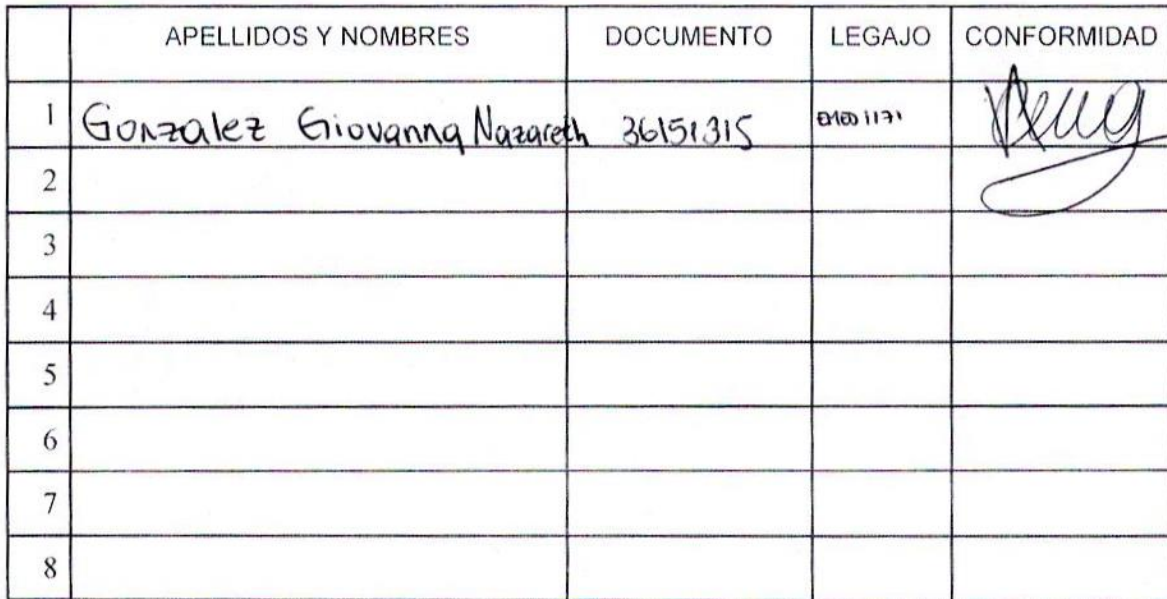 APELLIDOS Y NOMBRES DOCUMENTO LEGAJO CONFORMIDAD
1 Gonzalez Giovanna Nazareth 36151315
2
3
4
5
6
7
8